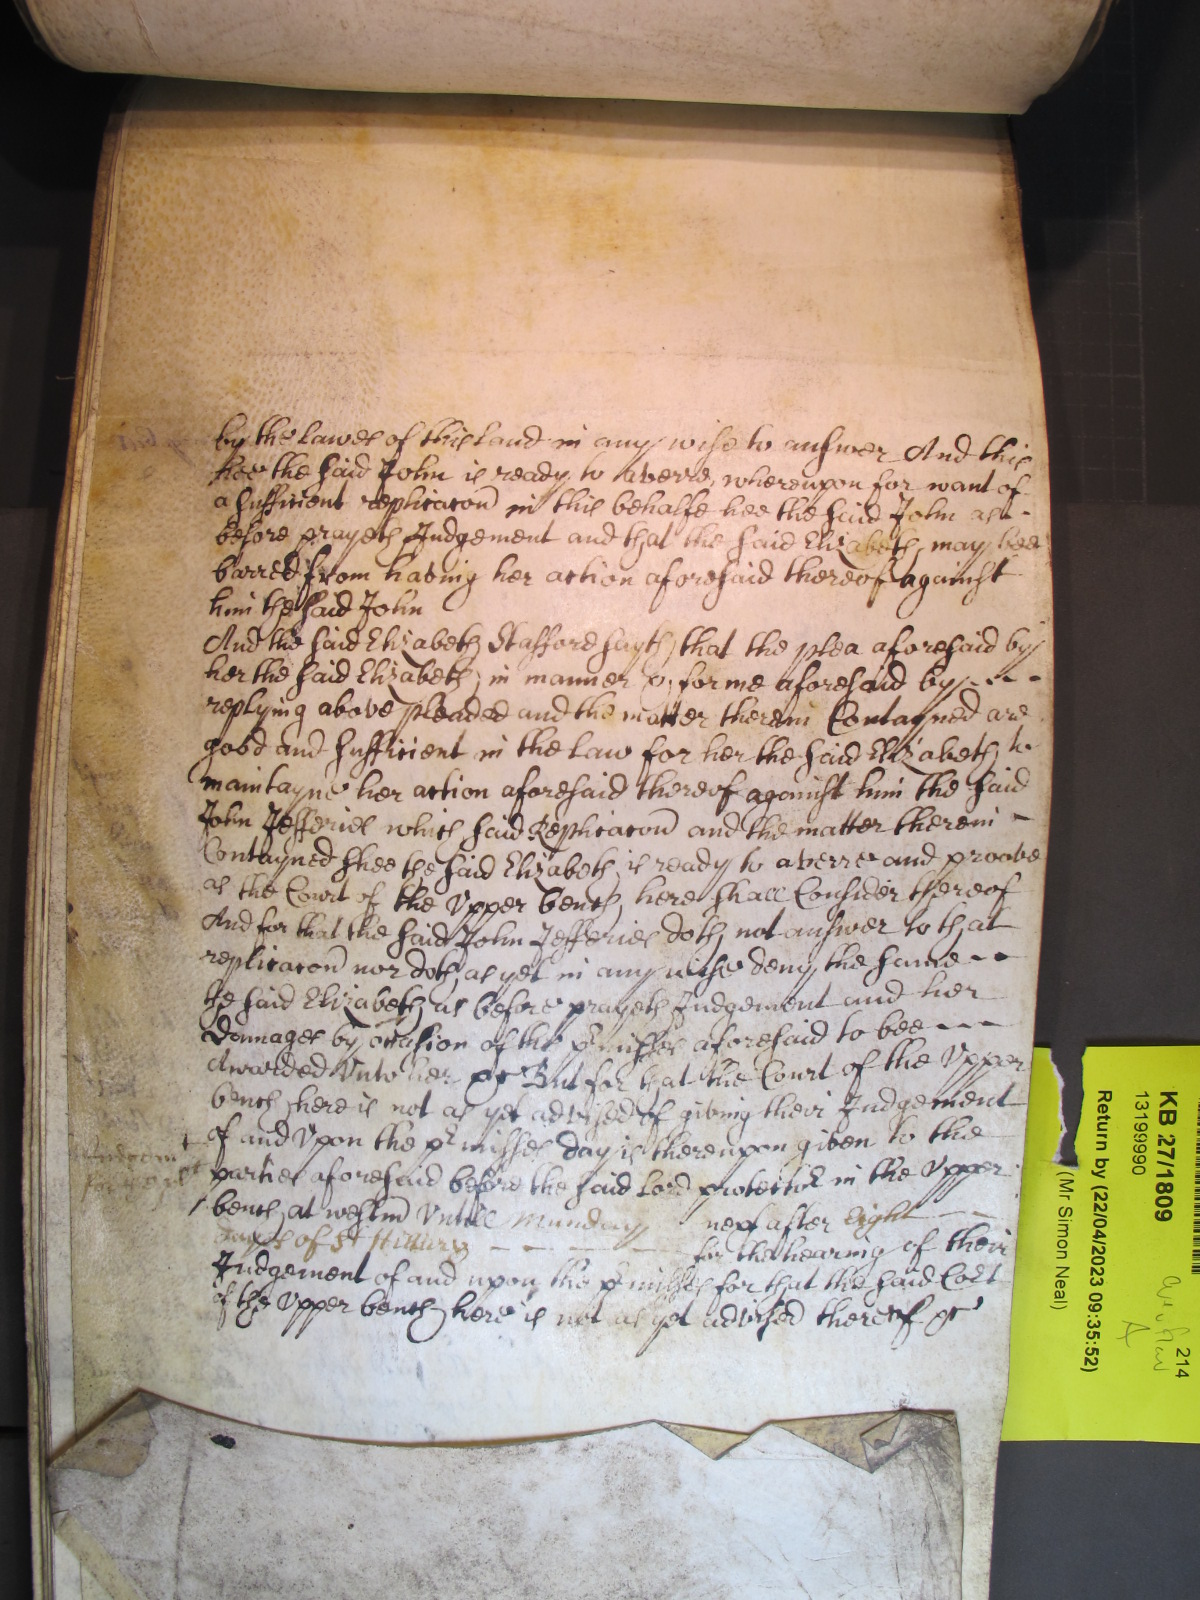 by the Lawes of this Land in any wise to answer And this
hee the said John is ready to averre, whereupon for want of
a sufficient replicacon in this behalfe hee the said John as -
before prayeth Judgement and that the said Elizabeth may bee
barred from having her action aforesaid thereof against
him the said John
And the said Elizabeth Stafford sayth that the plea aforesaid by
her the said Elizabeth in manner & forme aforesaid by - - -
replying above pleaded and the matter therein Contayned are
good and sufficient in the Law for her the said Elizabeth to
maintayne her action aforesaid thereof against him the said
John Jefferies which said Replicacon and the matter therein -
Contayned shee the said Elizabeth is ready to averre and proove
as the Court of the Upper bench here shall Consider thereof
And for that the said John Jefferies doth not answer to that
replicacon nor doth as yet in any wise deny the same - -
the said Elizabeth as before prayeth Judgement and her
Damages by occasion of the pmisses aforesaid to bee - - -
Awarded Unto her &c But for that the Court of the Upper
bench here is not as yet advised of giving their Judgement
of and Upon the pmisses day is thereupon given to the
parties aforesaid before the said Lord protector in the Upper
bench at Westm Untill Munday next after Eight - -
dayes of St Hillary - - - - - for the hearing of their
Judgement of and upon the pmisses for that the said Cort
of the Upper bench here is not as yet advised thereof &c
KB 27/1809
13199990
Return by (22/04/2023 09:35:52)
(Mr Simon Neal)
214